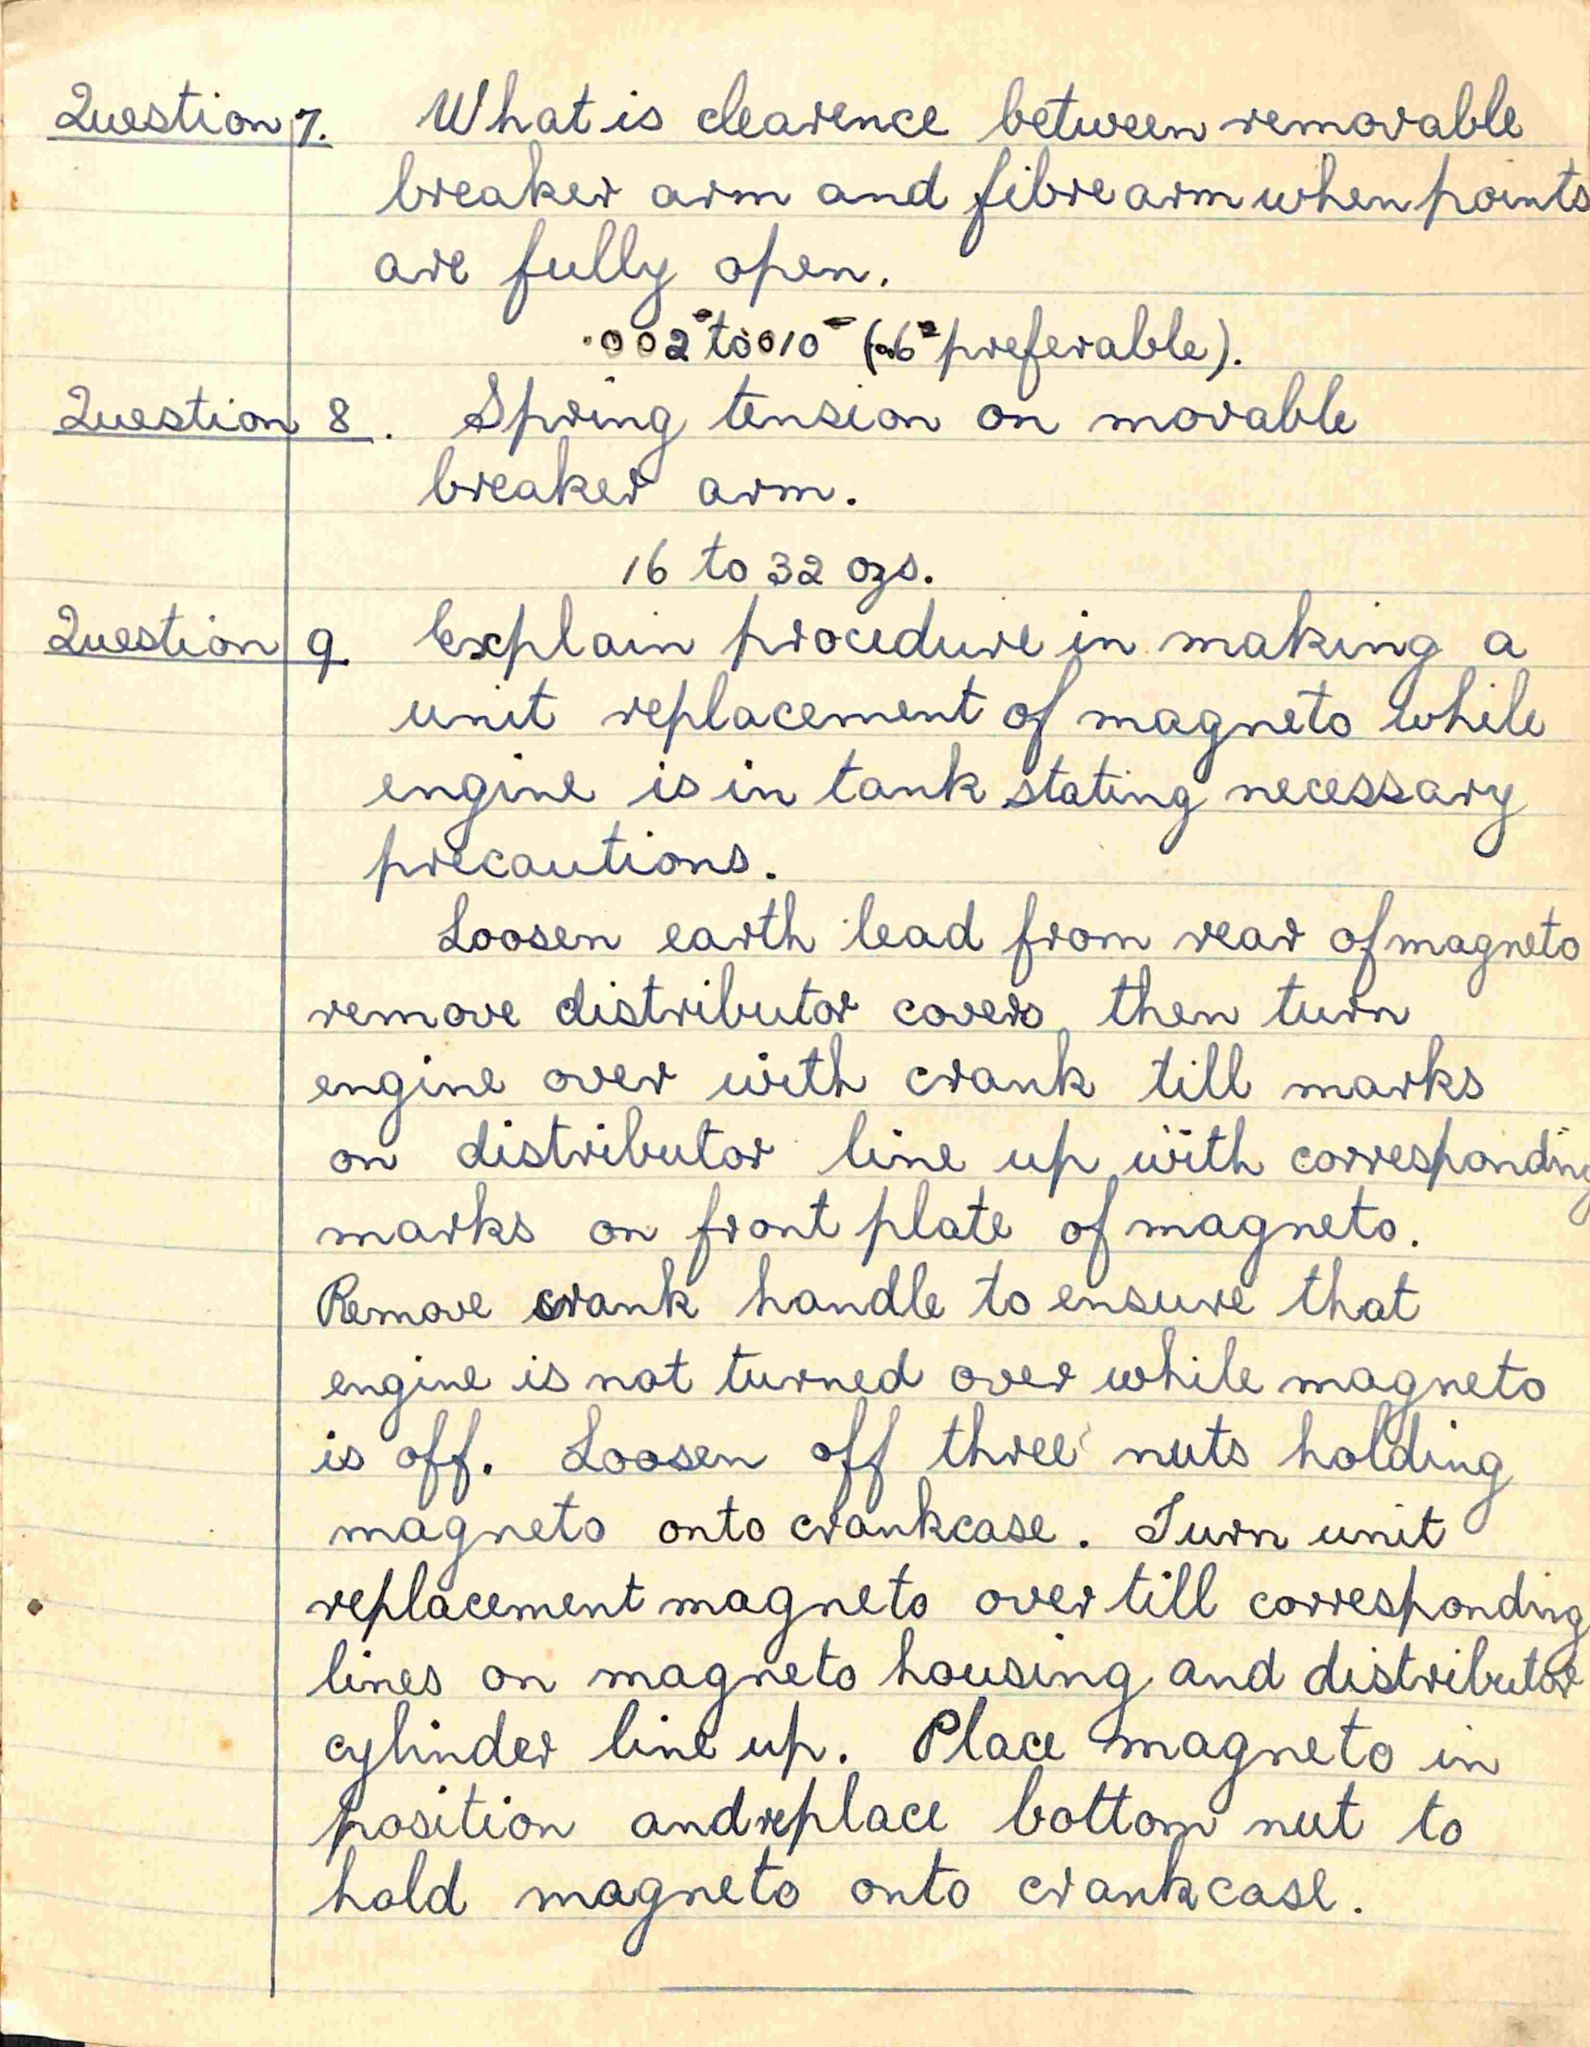 Question 7. What is clearence between removable
breaker arm and fibre arm when points
are fully open.
.002" to 010" ( 6" preferable).
Question 8. Spring tension on movable
breaker arm.
16 to 32 ozs.
Question 9. Explain procedure in making a
unit replacement of magneto while
engine is in tank stating necessary
precautions.
Loosen earth lead from rear of magneto
remove distributor covers then turn
engine over with crank till marks
on distributor line up with corresponding
marks on front plate of magneto.
Remove crank handle to ensure that
engine is not turned over while magneto
is off. Loosen off three nuts holding
magneto onto crankcase. Turn unit
replacement magneto over till corresponding
lines on magneto housing and distributor
cylinder line up. Place magneto in
position and replace bottom nut to
hold magneto onto crankcase.